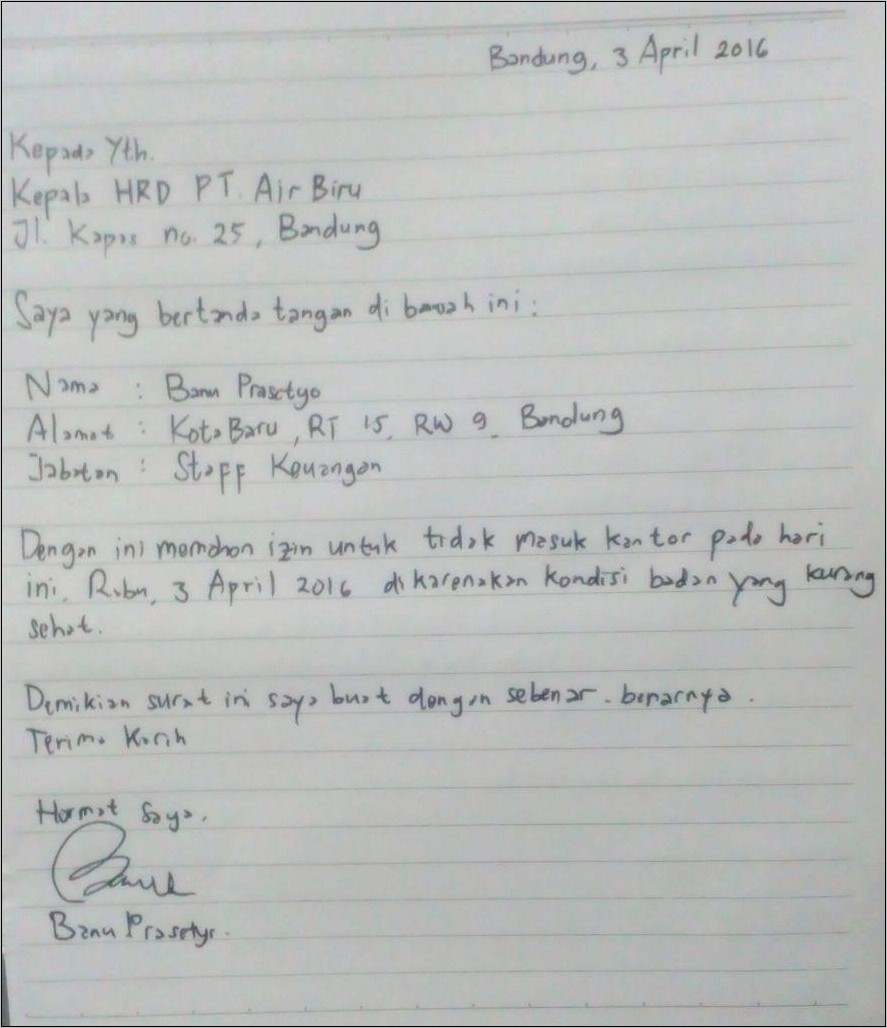 Bandung, 3 April 2016
Kepada Yth.
Kepala HRD PT. Air Biru
Jl. Kapas no. 25, Bandung
Saya yang bertanda tangan di bawah ini :
Nama : Banu Prasetyo
Alamat : Kota Baru, RT 15, RW 9, Bandung
Jabatan : Staff Keuangan
Dengan ini memohon izin untuk tidak masuk kantor pada hari
ini, Rabu, 3 April 2016 dikarenakan kondisi badan yang kurang
sehat.
Demikian surat ini saya buat dengan sebenar-benarnya.
Terima Kasih
Hormat Saya,
Banu Prasetyo.